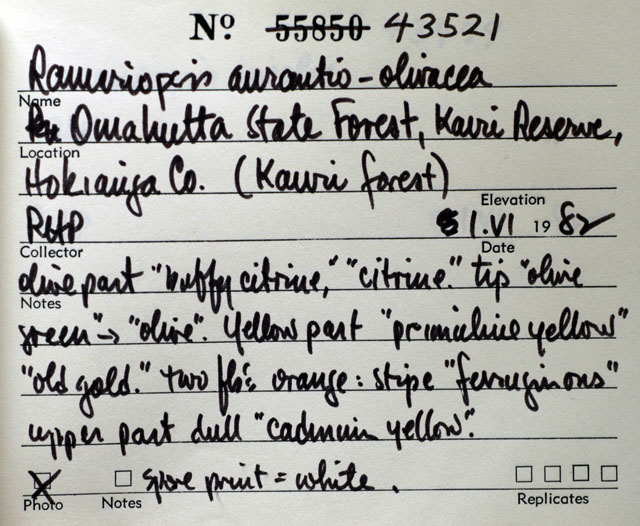 Nº 55850 43521
Ramariopsis aurantio-olivacea
Name
Omahutta State Forest, Kauri Reserve,
Location
Hokianga Co. (Kauri forest)
Elevation
RHP 1.VI 1982
Collector Date
olive part "buffy citrine," "citrine." tip "olive
Notes
green" → "olive". Yellow part "primuline yellow"
"old gold." two orange: stipe "ferruginous"
upper part dull "cadmium yellow".
Spore print = white.
Photo Notes Replicates